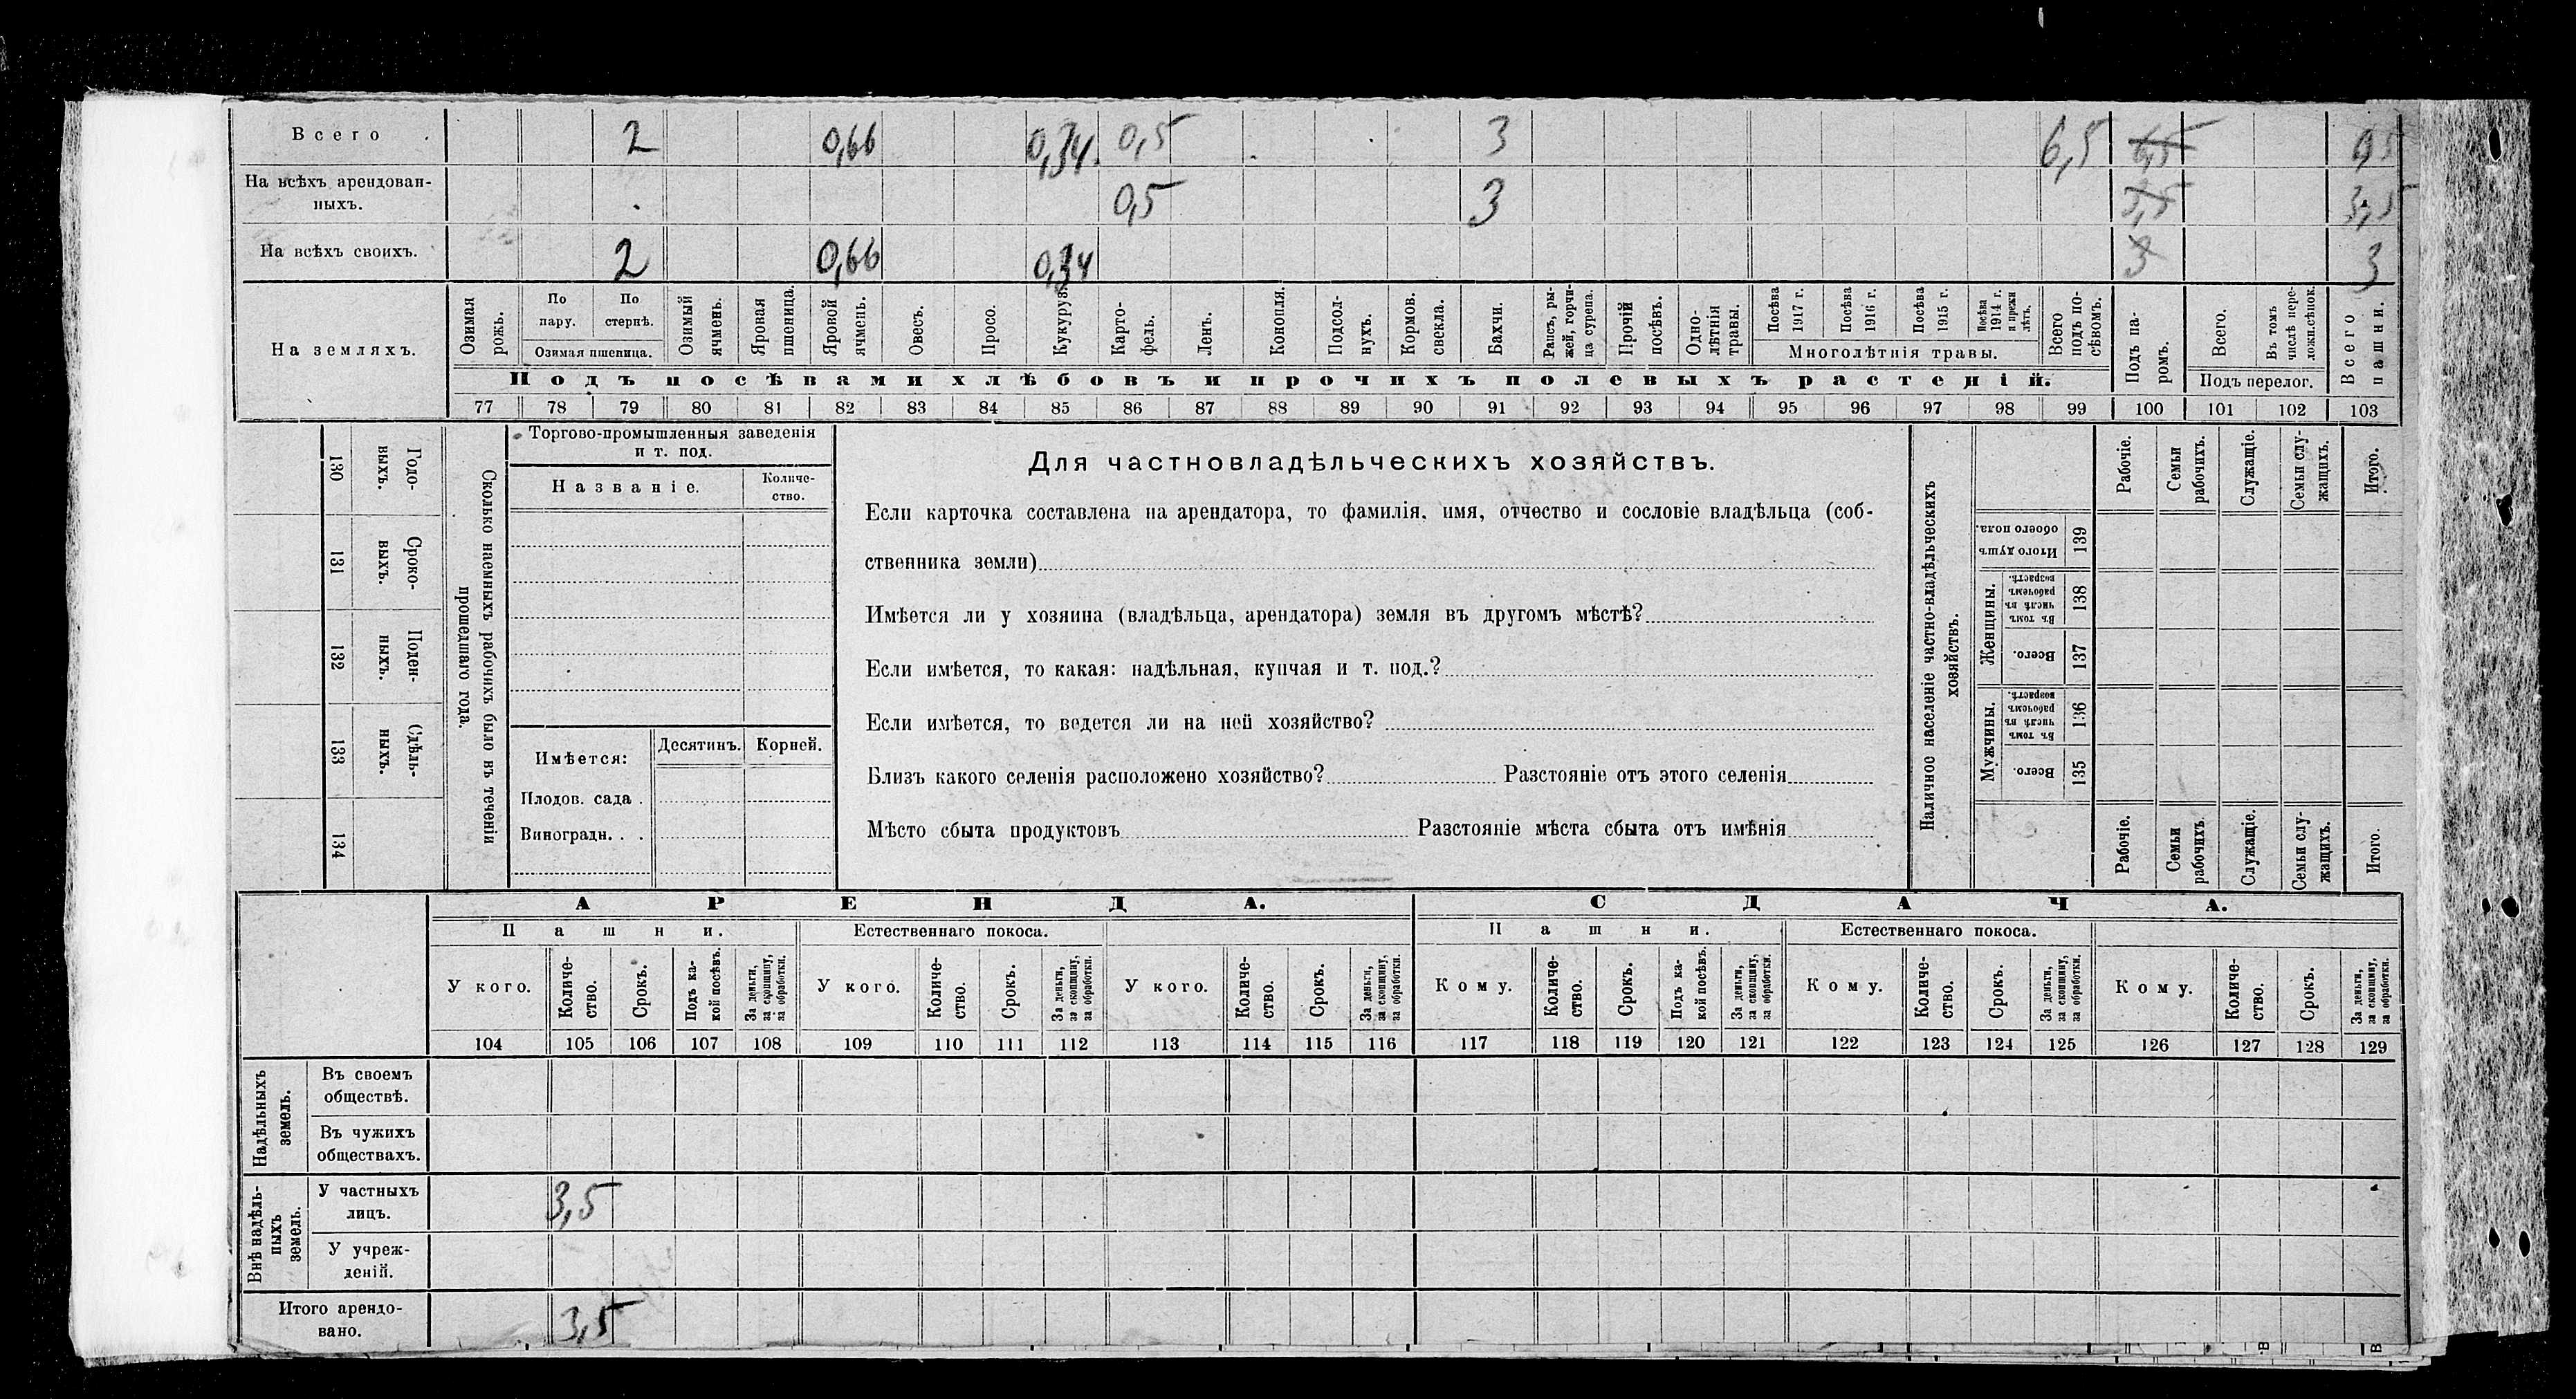 Всего . 2 0,66 0,34. 0,5 3 6,5 6,5
На всѣхъ арендован-
ныхъ. 0,5 3 3,5 3,5
На всѣхъ своихъ. 2 0,66 0,34 3 3
На земляхъ.
Озимая рожь.
По пару.
По стернѣ.
Озимая пшеница.
Озимый ячмень.
Яровая пшеница.
Яровой ячмень.
Овесъ.
Просо.
Кукуруза.
Карто-
фель.
Ленъ.
Конопля.
Подсол-
нухъ.
Кормов.
свекла.
Бахчи.
Рапсъ, ры-
жей, горчи-
ца сурепа.
Прочій
посѣвъ.
Одно-
лѣтнія
травы.
Посѣва
1917 г.
Посѣва
1916 г.
Посѣва
1915 г.
Посѣва
1914 г.
и прежн
лѣтъ.
Многолѣтнія травы.
Всего
подъ по-
сѣвомъ.
Подъ посѣвами хлѣбовъ и прочихъ полевыхъ растеній.
Подъ па-
ромъ.
Всего.
Въ томъ
числѣ пере-
ложн.сѣнок.
Подъ перелог.
Всего
пашни.
77 78 79 80 81 82 83 84 85 86 87 88 89 90 91 92 93 94 95 96 97 98 99 100 101 102 103
Годо-
выхъ.
130
Сроко-
выхъ.
131
Поден-
ныхъ.
132
Сдѣль-
ныхъ.
133
134
Сколько наемныхъ рабочихъ было въ теченіи
прошедшаго года.
Торгово-промышленныя заведенія
и т. под.
Названіе.
Количе-
ство.
Имѣется:
Десятинъ.
Корней.
Плодов. сада .
Виноградн. . .
Для частновладѣльческихъ хозяйствъ.
Если карточка составлена на арендатора, то фамилія, имя, отчество и сословіе владѣльца (соб-
ственника земли)
Имѣется ли у хозяина (владѣльца, арендатора) земля въ другомъ мѣстѣ?
Если имѣется, то какая: надѣльная, купчая и т. под.?
Если имѣется, то ведется ли на ней хозяйство?
Близъ какого селенія расположено хозяйство? Разстояніе отъ этого селенія
Мѣсто сбыта продуктовъ Разстояніе мѣста сбыта отъ имѣнія
Наличное населеніе частно-владѣльческихъ
хозяйствъ.
Рабочіе.
Семьи
рабочихъ.
Служащіе.
Семьи слу-
жащихъ.
Итого.
Итого душъ
обоего пола.
139
Женщины.
Въ томъ
числѣ въ
рабочемъ
возрастѣ.
138
Всего.
137
Мужчины.
Въ томъ
числѣ въ
рабочемъ
возрастѣ.
136
Всего.
135
Рабочіе.
Семьи
рабочихъ.
Служащіе.
Семьи слу-
жащихъ.
Итого.
АРЕНДА. СДАЧА.
Пашни. Естественнаго покоса. Пашни. Естественнаго покоса.
У кого.
Количе-
ство.
Срокъ.
Подъ ка-
кой посѣвъ.
За деньги,
за скопщину,
за обработки.
У кого.
Количе-
ство.
Срокъ.
За деньги,
за скопщину,
за обработки.
У кого.
Количе-
ство.
Срокъ.
За деньги,
за скопщину,
за обработки.
Кому.
Количе-
ство.
Срокъ.
Подъ ка-
кой посѣвъ.
За деньги,
за скопщину,
за обработки.
Кому.
Количе-
ство.
Срокъ.
За деньги,
за скопщину,
за обработки.
Кому.
Количе-
ство.
Срокъ.
За деньги,
за скопщину,
за обработки.
104 105 106 107 108 109 110 111 112 113 114 115 116 117 118 119 120 121 122 123 124 125 126 127 128 129
Надѣльныхъ
земель.
Въ своемъ
обществѣ.
Въ чужихъ
обществахъ.
Внѣ надѣль-
ныхъ
земель.
У частныхъ
лицъ. 3,5
У учреж-
деній.
Итого арендо-
вано. 3,5